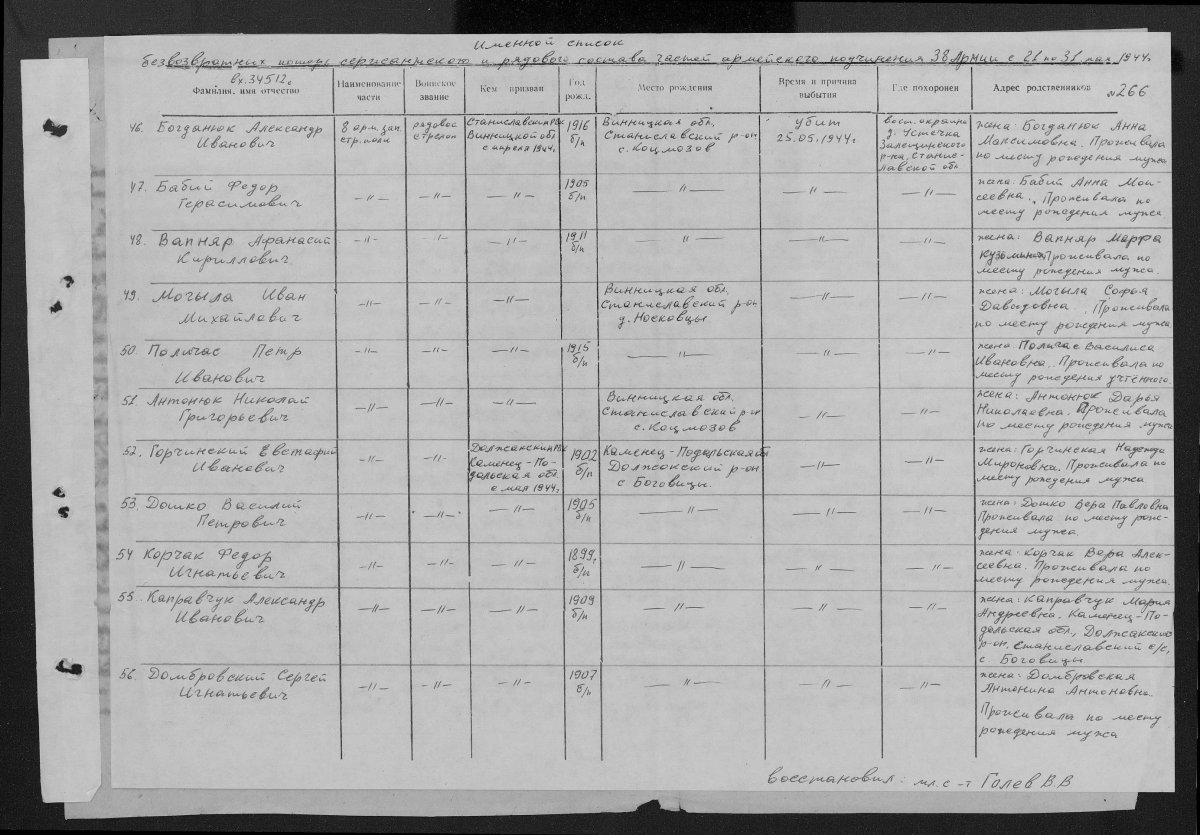 Именной список
безвозвратных потерь сержантского и рядового состава частей армейского подчинения 38 Армии с 21 по 31 мая 1944г
вх.34512с
Фамилия, имя отчество
Наименование части
Воинское звание
Кем призван
Год рожд.
Место рождения
Время и причина выбытия
Где похоронен
Адрес родственников
№266
46. Богданюк Александр Иванович
8 арм. зап. стр. полк
рядовой стрелок
Станиславским РВК Винницкой обл. с апреля 1944г
1916 б/п
Винницкая обл. Станиславский р-он с. Коцмозов
убит 25.05.1944г
вост. окраина д. Устечка Залещинского р-на, Станиславской обл
жена: Богданюк Анна Максимовна. Проживала по месту рождения мужа
47. Бабий Федор Герасимович
—〃— —〃— —〃—
1905 б/п
—〃— —〃— —〃—
жена: Бабий Анна Моисеевна. Проживала по месту рождения мужа
48. Вапняр Афанасий Кириллович
—〃— —〃— —〃—
1911 б/п
—〃— —〃— —〃—
жена: Вапняр Марфа Кузьминич. Проживала по месту рождения мужа.
49. Могыла Иван Михайлович
—〃— —〃— —〃—
Винницкая обл. Станиславский р-он д. Носковцы
—〃— —〃—
жена: Могыла Софья Давыдовна. Проживала по месту рождения мужа
50. Поличас Петр Иванович
—〃— —〃— —〃—
1915 б/п
—〃— —〃— —〃—
жена: Поличас Василиса Ивановна. Проживала по месту рождения учтенного.
51. Антонюк Николай Григорьевич
—〃— —〃— —〃—
Винницкая обл. Станиславский р-он с. Коцмозов
—〃— —〃—
жена: Антонюк Дарья Николаевна. Проживала по месту рождения мужа
52. Горчинский Евстафий Иванович
—〃— —〃—
Должанским РВК Каменец-Подольская обл. с мая 1944г
1902 б/п
Каменец-Подольская обл Должокский р-он с Боговицы.
—〃— —〃—
жена: Горчинская Надежда Мироновна. Проживала по месту рождения мужа
53. Дошко Василий Петрович
—〃— —〃— —〃—
1905 б/п
—〃— —〃— —〃—
жена: Дошко Вера Павловна Проживала по месту рождения мужа.
54 Корчак Федор Игнатьевич
—〃— —〃— —〃—
1899г б/п
—〃— —〃— —〃—
жена: Корчак Вера Алексеевна. Проживала по месту рождения мужа.
55. Каправчук Александр Иванович
—〃— —〃— —〃—
1909 б/п
—〃— —〃— —〃—
жена: Каправчук Мария Андреевна. Каменец-Подольская обл., Должакский р-он, Станиславский с/с, с Боговицы
56. Домбровский Сергей Игнатьевич
—〃— —〃— —〃—
1907 б/п
—〃— —〃— —〃—
жена: Домбровская Антонина Антоновна. Проживала по месту рождения мужа
восстановил: мл. с-т Голев В.В